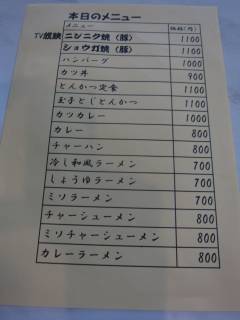 本日のメニュー
メニュー 価格(円)
TV放映 ニンニク焼(豚) 1100
ショウガ焼(豚) 1100
ハンバーグ 1000
カツ丼 900
とんかつ定食 1100
玉子とじとんかつ 1100
カツカレー 1000
カレー 800
チャーハン 800
冷し和風ラーメン 700
しょうゆラーメン 700
ミソラーメン 700
チャーシューメン 800
ミソチャーシューメン 800
カレーラーメン 800